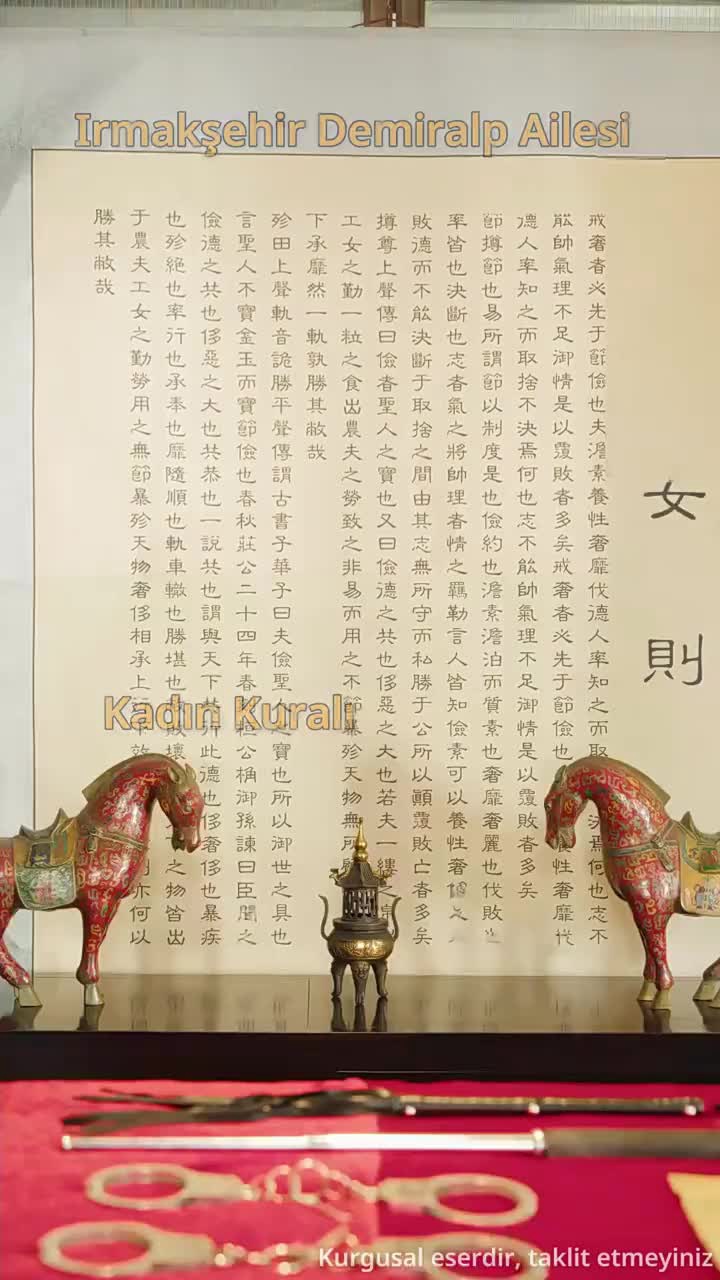 Irmakşehir Demiralp Ailesi
女則
戒奢者必先于節儉也夫澹素養性奢靡伐德人率知之而取決焉何也志不
能帥氣理不足御情是以覆敗者多矣戒奢者必先于節儉也養性奢靡伐
德人率知之而取捨不決焉何也志不能帥氣理不足御情是以覆敗者多矣
節撙節也易所謂節以制度是也儉約也澹素澹泊而質素也奢靡奢麗也伐敗也
率皆也決斷也志者氣之將帥理者情之羈勒言人皆知儉素可以養性奢
敗德而不能決斷于取捨之間由其志無所守而私勝于公所以顛覆敗亡者多矣
撙尊上聲傳曰儉者聖人之寶也又曰儉德之共也侈惡之大也若夫一縷
工女之勤一粒之食出農夫之勞致之非易而用之不節暴殄天物無所
下承靡然一軌孰勝其敝哉
殄田上聲軌音詭勝平聲傳謂古書子華子曰夫儉聖人之寶也所以御世之具也
言聖人不寶金玉而寶節儉也春秋莊公二十四年春桓公桷御孫諫曰臣聞之
儉德之共也侈惡之大也共恭也一說共也謂與天下共行此德也侈奢侈也暴疾
也殄絕也率行也承奉也靡隨順也軌車轍也勝堪也敗壞之物皆出
于農夫工女之勤勞用之無節暴殄天物奢侈相承上效亦何以
勝其敝哉
Kadın Kuralı
Kurgusal eserdir, taklit etmeyiniz